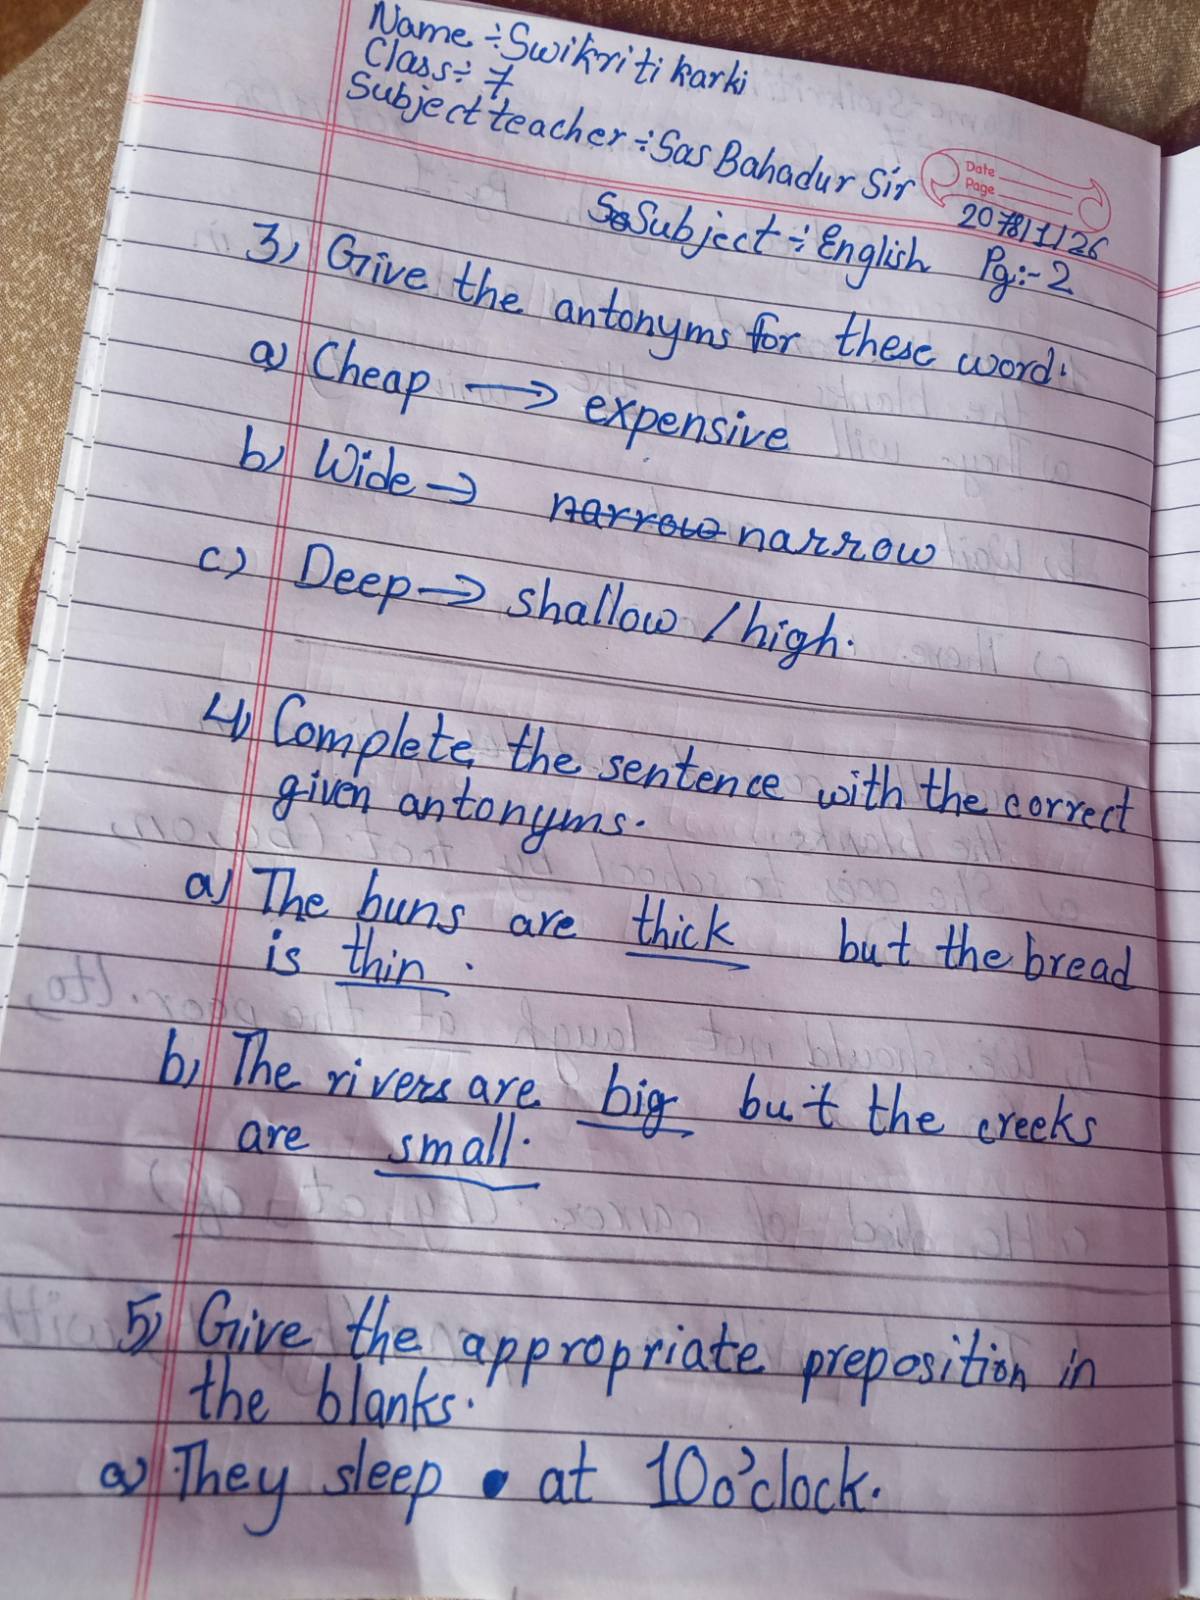 Name ÷ Swikriti karki
Class ÷ 7
Subject teacher ÷ Sas Bahadur Sir
Date
Page
2078/1/26
Subject ÷ English Pg:- 2
3) Give the antonyms for these word.
a) Cheap → expensive
b) Wide → narrow narrow
c) Deep → shallow / high.
4) Complete the sentence with the correct
given antonyms.
a) The buns are thick but the bread
is thin.
b) The rivers are big but the creeks
are small.
5) Give the appropriate preposition in
the blanks.
a) They sleep at 10 o'clock.